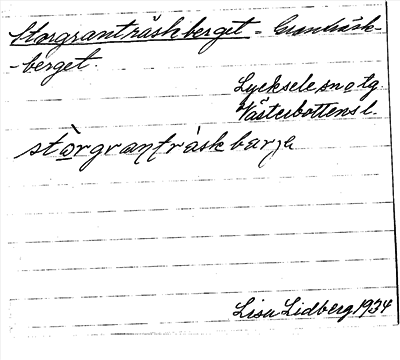 Storgranträskberget = Granträsk-
-berget.
Lycksele sn o tg.
Västerbottens l.
stòrgranträ̀skbarje
Lisa Lidberg 1934